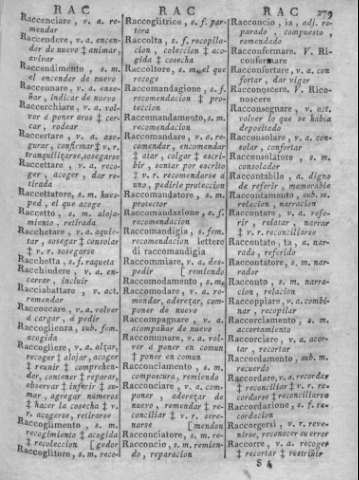 RAC
RAC
RAC
279
Raccenciare, v. a. re-
mendar
Raccendere, v. a. encen-
der de nuevo ‡ animar,
avivar
Raccendimento, s. m.
el encender de nuevo
Raccennare, v. a. ense-
ñar, indicar de nuevo
Raccerchiare, v. a. vol-
ver á poner aros ‡ cer-
car, rodear
Raccertare, v. a. ase-
gurar, confirmar ‡ v. r.
tranquilizarse, asegurarse
Raccettare, v. a. reco-
ger, acoger, dar re-
tirada
Raccettatore, s. m. hues-
ped, el que acoge
Raccetto, s. m. aloja-
miento, retirada
Racchetare, v. a. aquie-
tar, sosegar ‡ consolar
‡ v. r. sosegarse
Racchetta, s. f. raqueta
Racchiudere, v. a. en-
cerrar, incluir
Racciabattare, v. act.
remendar
Raccoccare, v. a. volver
á cargar, á pedir
Raccoglienza, sub. fem.
acogida
Raccogliere, v. a. alzar,
recoger ‡ alojar, acoger
‡ reunir ‡ comprehen-
der, contener ‡ reparar,
observar ‡ inferir ‡ su-
mar, agregar números
‡ hacer la cosecha ‡ v.
r. acogerse, retirarse
Raccoglimento, s. m.
recogimiento ‡ acogida
‡ recoleccion [gedor
Raccoglitore, s. m. reco-
Raccoglitrice, s. f. par-
tera
Raccolta, s. f. recopila-
cion, coleccion ‡ aco-
gida ‡ cosecha
Raccoltore, s. m. el que
recoge
Raccomandagione, s. f.
recomendacion ‡ pro-
teccion
Raccomandamento, s. m.
recomendacion
Raccomandare, v. a. re-
comendar, encomendar
‡ atar, colgar ‡ escri-
bir, entar por escribo
‡ v. r. recomendarse á
uno, pedirle proteccion
Raccomandatore, s. m.
protector
Raccomandazione, s. f.
recomendacion
Raccomandigia, s. fem.
recomendacion lettere
di raccomandigia
Raccommiare, v. a. des-
pedir [remiendo
Raccomodamento, s. m.
Raccomodare, v. a. re-
mendar, aderezar, com-
poner de nuevo
Raccompagnare, v. a.
acompañar de nuevo
Raccomunare, v. a. vol-
ver á poner en comun
‡ poner en comun
Racconciamento, s. m.
compostura, remiendo
Racconciare, v. a. com-
poner, aderezar de
nuevo, remendar ‡ re-
conciliar ‡ v. r. sere-
narse [mendon
Racconciatore, s. m. re-
Racconcio, s. m. remien-
do, reparacion
Racconcio, ia, adj. re-
parado, compuesto,
remendado
Racconfermare. V. Ri-
confermare
Racconfortare, v. a. con-
fortar, dar vigor
Racconoscere. V. Rico-
noscere
Racconsegnare, v. act.
volver lo que se habia
depositado
Racconsolare, v. a. con-
solar, confortar
Racconsolatore, s. m.
consolador
Raccontabile, a. digno
de referir, memorable
Raccontamento, sub. m.
relacion, narracion
Raccontare, v. a. refe-
rir, relatar, narrar
‡ v. r. reconciliarse
Raccontato, ta, a. nar-
rado, referido
Raccontatore, s. m. nar-
rador
Racconto, s. m. narra-
cion, relacion
Raccoppiare, v. a. combi-
nar, recopilar
Raccorciamento, s. m.
acortamiento
Raccorciare, v. a. acor-
tar, recortar
Raccordamento, sub. m.
recuerdo
Raccordare, v. a. recordar
‡ reconciliar ‡ v. r. re-
cordarse ‡ reconciliarse
Raccordazione, s. f. re-
cordacion
Raccorgersi, v. r. reve-
nirse, reconocer su error
Raccorre, v. a. recoger
‡ recortar ‡ restituir
S 4